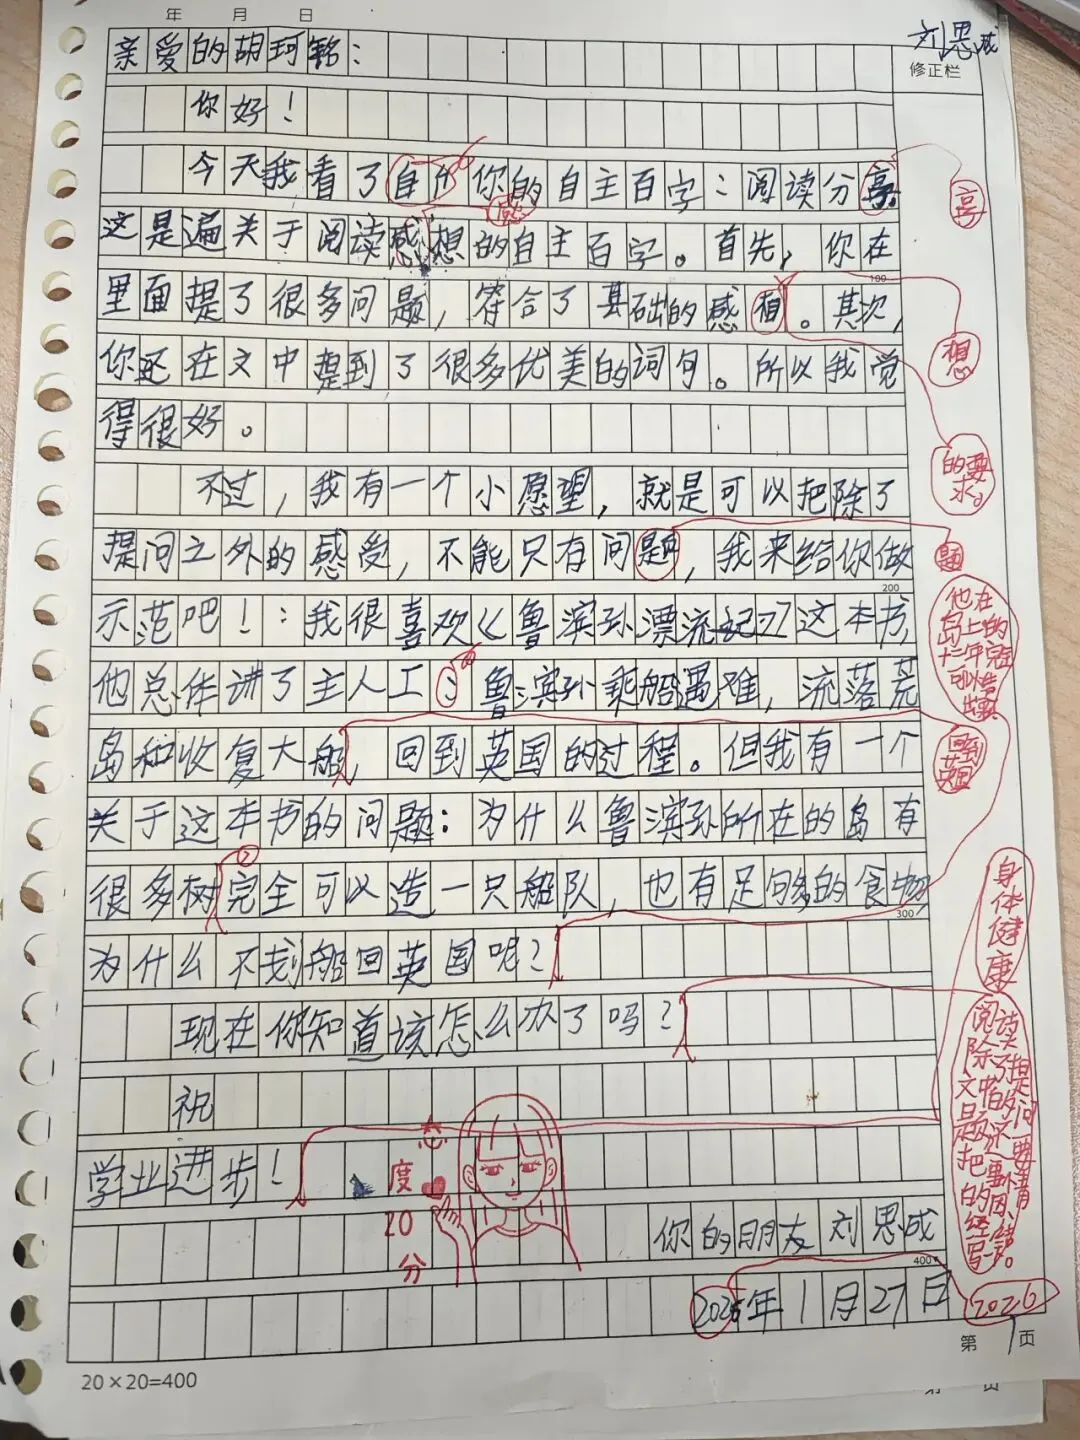 年 月 日
刘思成
修正栏
亲爱的胡珂铭：
你好！
今天我看了自你的自主百字：阅读分享
感
享
这是遍关于阅读感想的自主百字。首先，你在
100
里面提了很多问题，符合了基础的感相。其次，
想
你还在文中提到了很多优美的词句。所以我觉
得很好。
的要求。
不过，我有一个小愿望，就是可以把除了
提问之外的感受，不能只有问题，我来给你做
题
200
示范吧！：我很喜欢《鲁滨孙漂流记》这本书，
他在岛上的
他总体讲了主人工：鲁滨孙乘船遇难，流落荒
岛和收复大船，回到英国的过程。但我有一个
回到英国
关于这本书的问题：为什么鲁滨孙所在的岛有
很多树完全可以造一只船队，也有足够多的食物
300
为什么不划船回英国呢？
身体健康
现在你知道该怎么办了吗？
祝
学业进步！
态度20分
你的朋友刘思成
400
2026年1月27日
2026
第1页
20×20=400